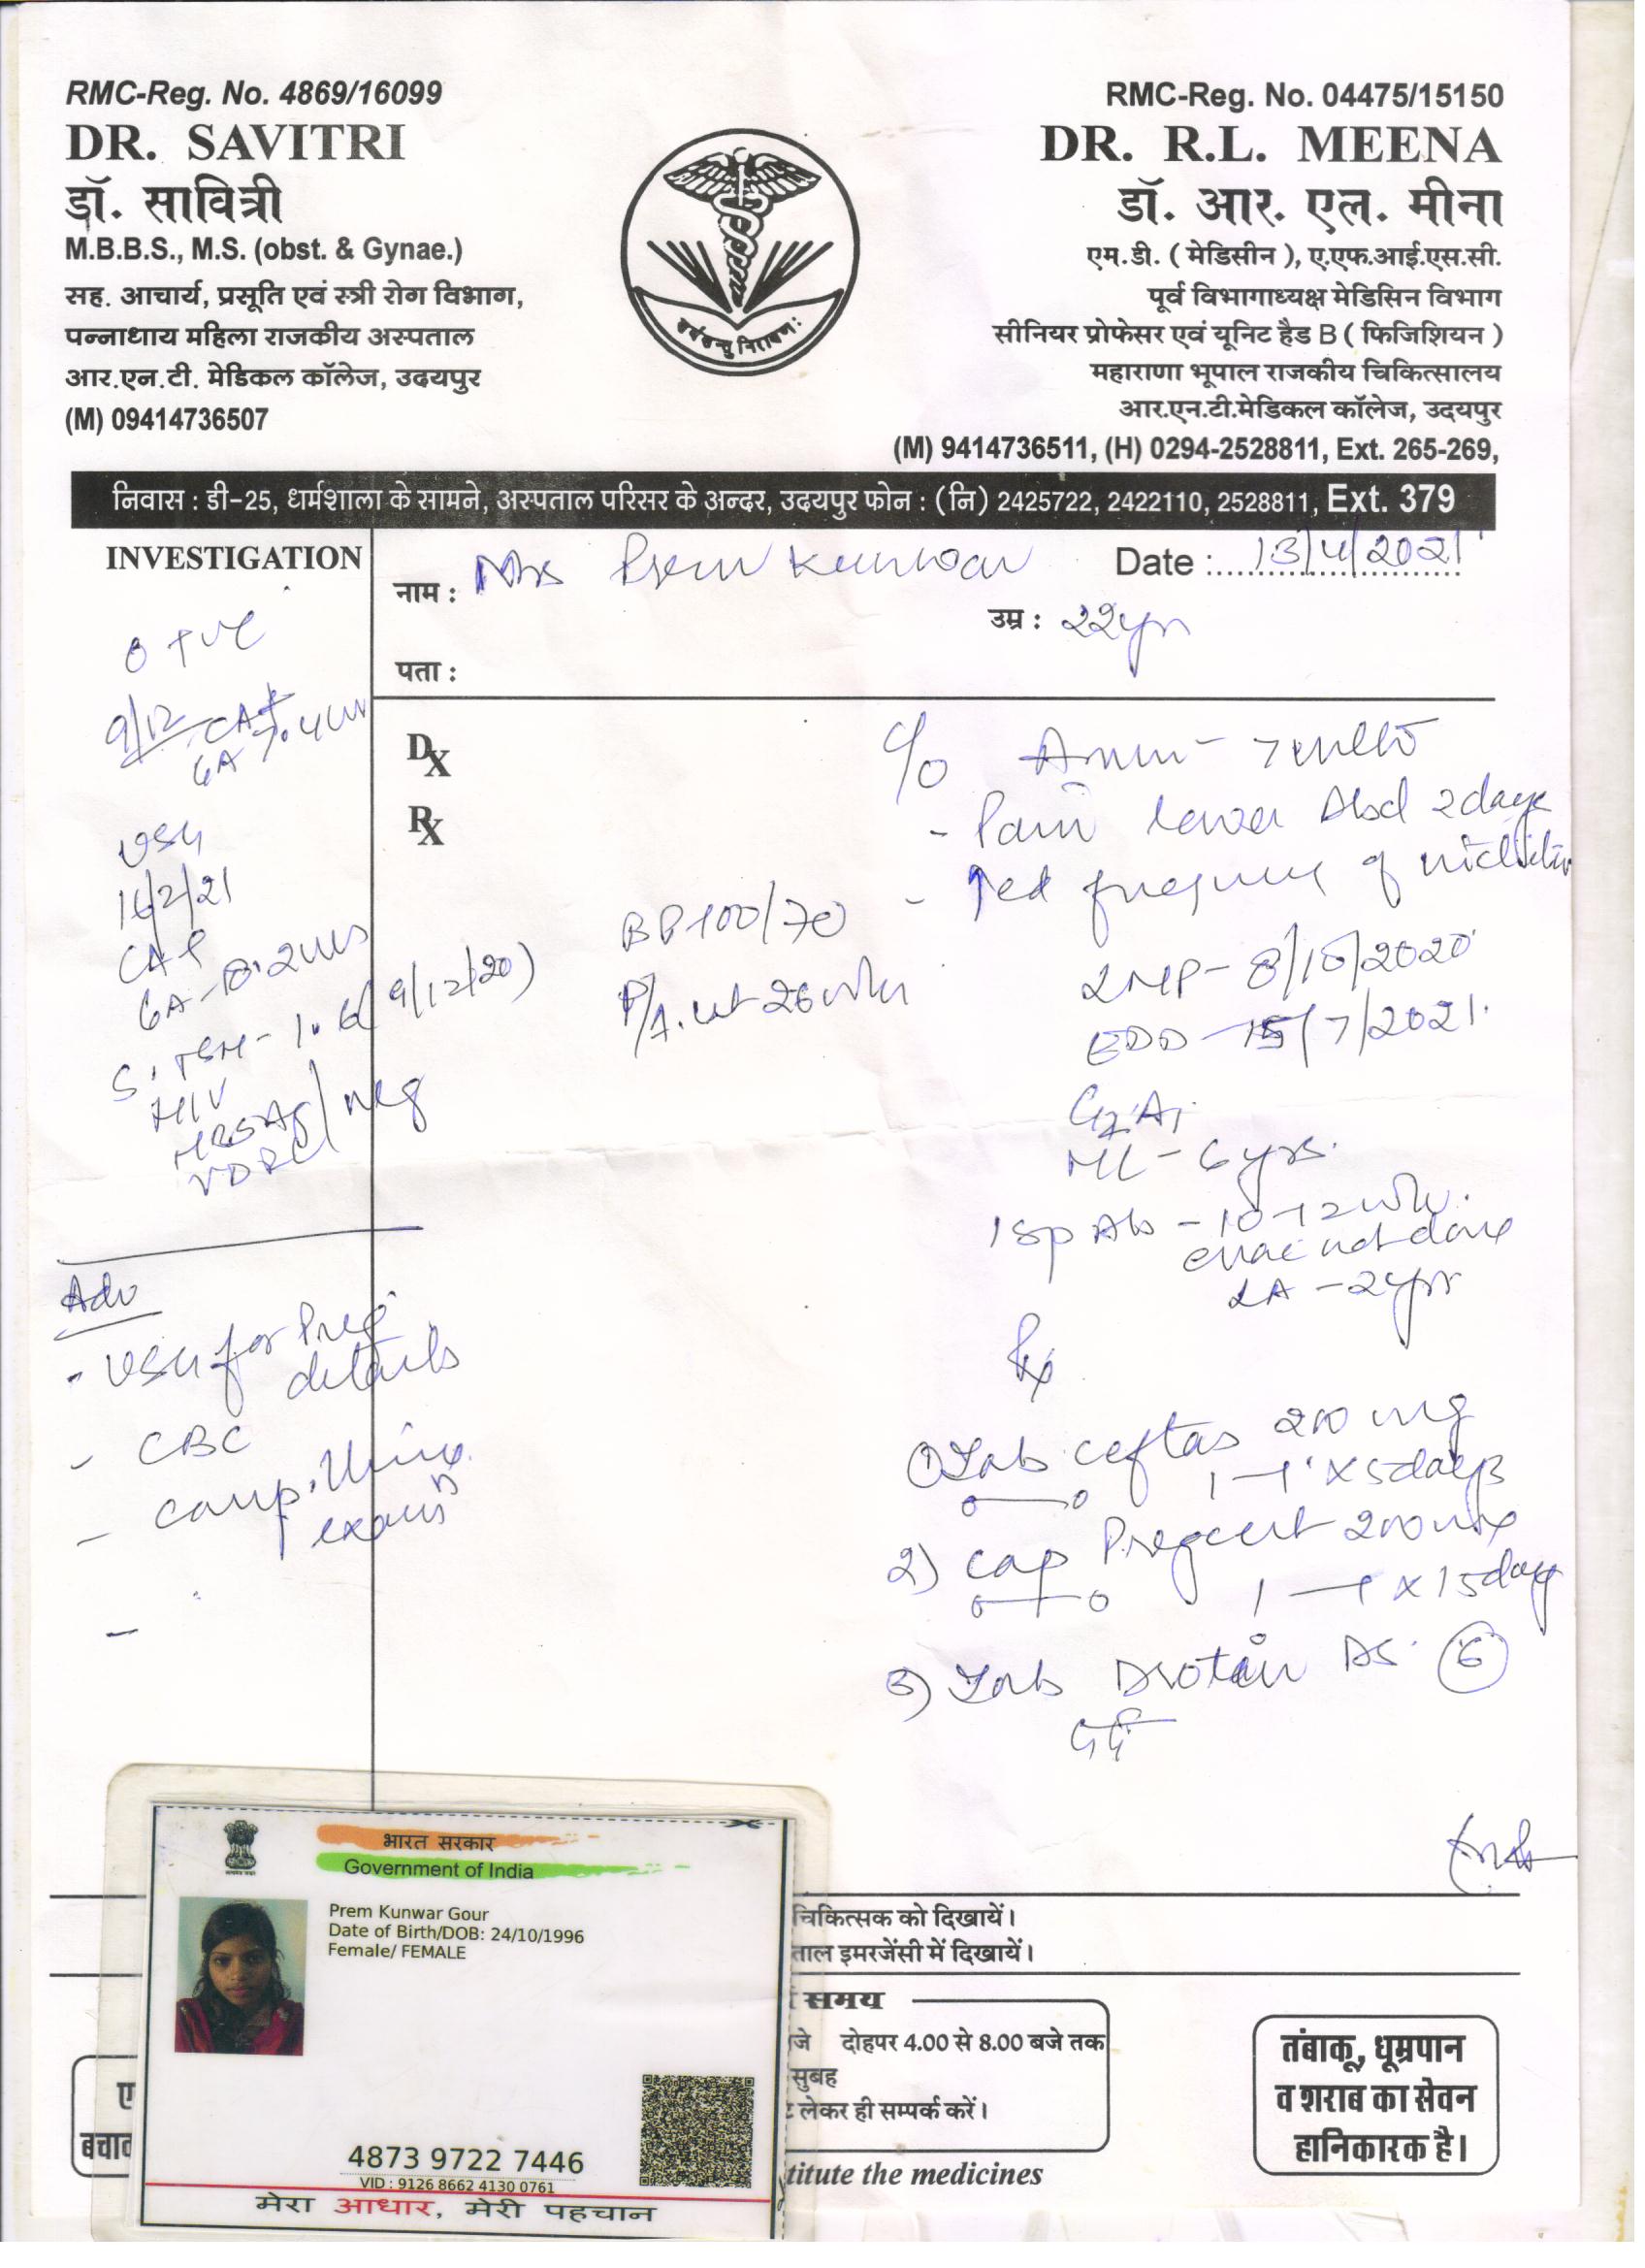 RMC-Reg. No. 4869/16099
DR. SAVITRI
डॉ. सावित्री
M.B.B.S., M.S. (obst. & Gynae.)
सह. आचार्य, प्रसूति एवं स्त्री रोग विभाग,
पन्नाधाय महिला राजकीय अस्पताल
आर.एन.टी. मेडिकल कॉलेज, उदयपुर
(M) 09414736507
RMC-Reg. No. 04475/15150
DR. R.L. MEENA
डॉ. आर. एल. मीना
एम.डी. ( मेडिसीन ), ए.एफ.आई.एस.सी.
पूर्व विभागाध्यक्ष मेडिसिन विभाग
सीनियर प्रोफेसर एवं यूनिट हैड B ( फिजिशियन )
महाराणा भूपाल राजकीय चिकित्सालय
आर.एन.टी.मेडिकल कॉलेज, उदयपुर
(M) 9414736511, (H) 0294-2528811, Ext. 265-269,
निवास : डी-25, धर्मशाला के सामने, अस्पताल परिसर के अन्दर, उदयपुर फोन : (नि) 2425722, 2422110, 2528811, Ext. 379
INVESTIGATION
नाम : Mrs Prem Kunwar
Date : 13/4/2021
उम्र : 22yrs
पता :
O +ve
9/12
GA 7.4
USG
16/2/21
GA
S. TSH - 1.6 (9/12/20)
HIV
HBSAg / neg
VDRL
Adv
- USG for Preg
details
- CBC
- comp. Urine
exam
Dx
Rx
c/o Amm -
- Pain lower Abd 2days
- ↑ed frequency of
BP 100/70
P/A. ut 26 wks
LMP - 8/10/2020
EDD - 15/7/2021.
G2A1
ML - 6yrs.
1 sp Ab - 10-12 wks.
evac not done
LA - 2yrs
Rx
1) Tab ceftas 200 mg
1 - 1 x 5days
2) cap Pregcert 200
1 - 1 x 15days
3) Tab Drotin DS (6)
दर्द
भारत सरकार
Government of India
Prem Kunwar Gour
Date of Birth/DOB: 24/10/1996
Female/ FEMALE
4873 9722 7446
VID : 9126 8662 4130 0761
मेरा आधार, मेरी पहचान
चिकित्सक को दिखायें।
ताल इमरजेंसी में दिखायें।
समय
जे दोहपर 4.00 से 8.00 बजे तक
सुबह
लेकर ही सम्पर्क करें।
titute the medicines
ए
बचाव
तंबाकू, धूम्रपान
व शराब का सेवन
हानिकारक है।